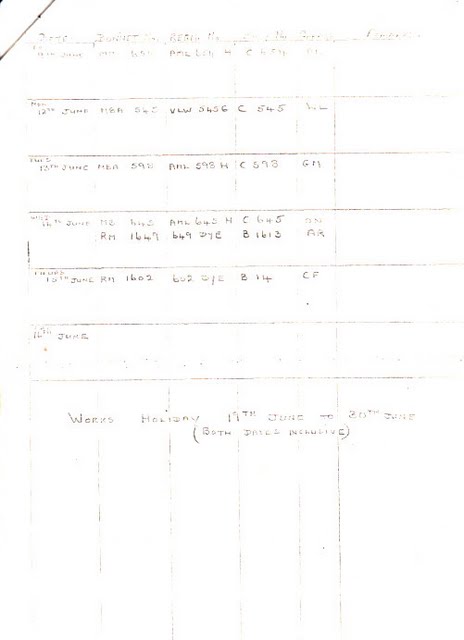 DATE REGIS No.
JUNE AML H C
MON
12TH JUNE MBA 545 VLW 545G C 545
TUES
13TH JUNE MBA 593 AML 593 H C 593 GM
WED
14TH JUNE MB 645 AML 645 H C 645
RM 1649 649 DYE B 1613 AR
THURS
15TH JUNE RM 1602 602 DYE B 14 CF
FRI
16TH JUNE
WORKS HOLIDAY 19TH JUNE TO 30TH JUNE
(BOTH DATES INCLUSIVE)